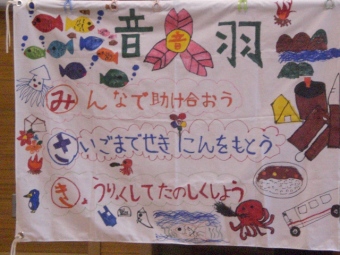 音 音 羽
みんなで助け合おう
さいごまでせきにんをもとう
きょうりょくしてたのしくしよう